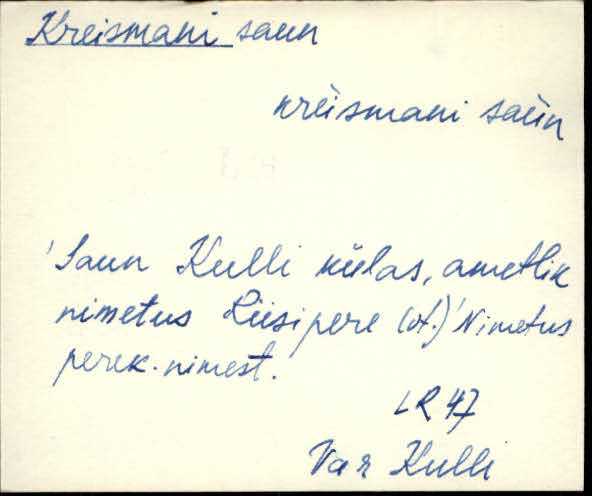 Kreismani saun
krèismani saùn
'Saun Kulli külas, ametlik
nimetus Liisipere (vt.)' Nimetus
perek. nimest.
LR 47
Var Kulli